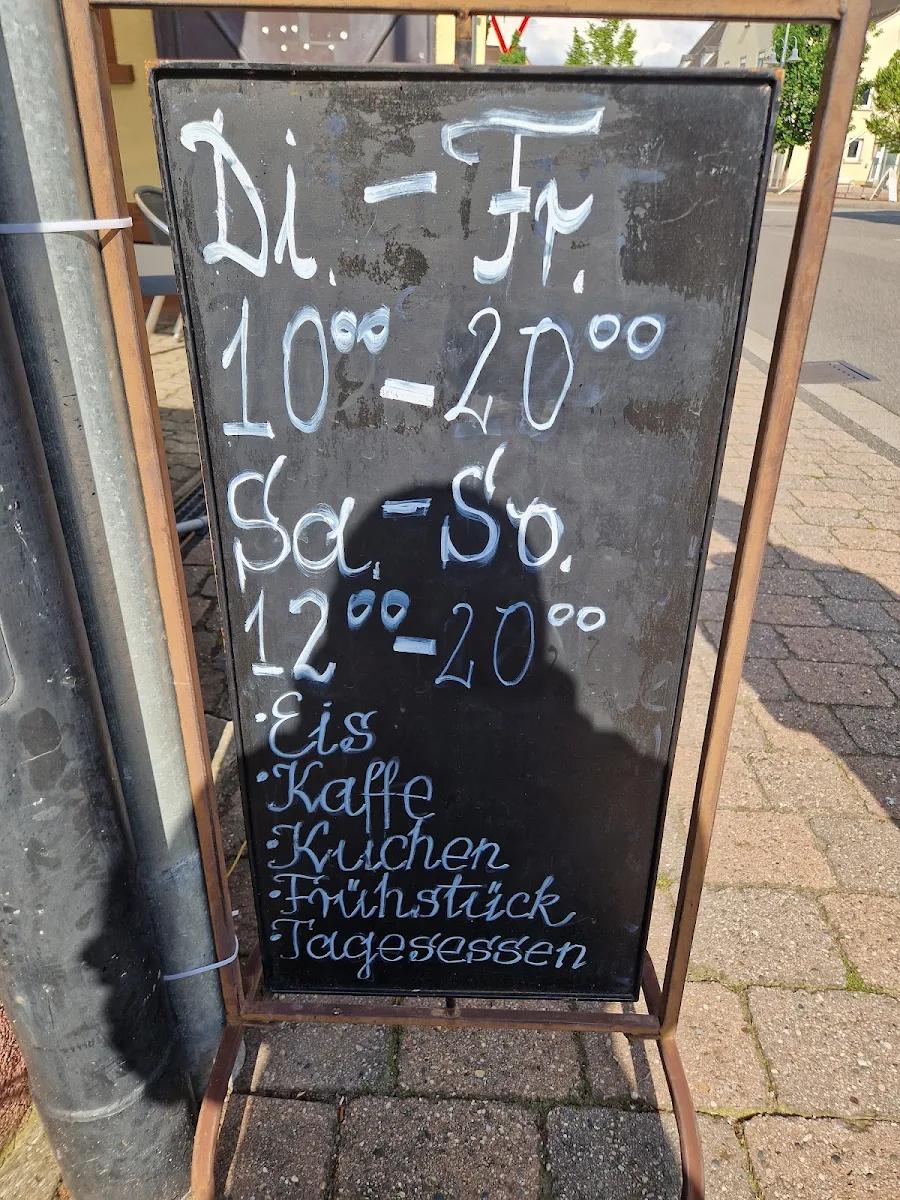 Di. - Fr.
10⁰⁰ - 20⁰⁰
Sa. - So.
12⁰⁰ - 20⁰⁰
· Eis
· Kaffe
· Kuchen
· Frühstück
· Tagesessen